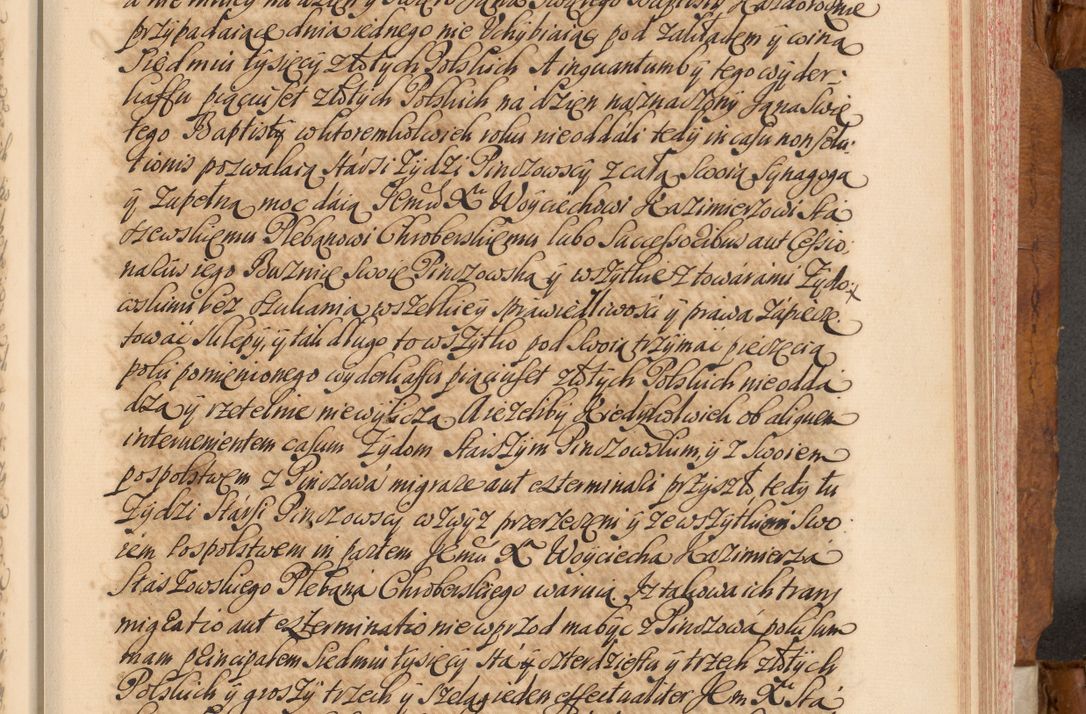 a nie mniey na dzien y Swięto Jana Swiętego Baptisty Kazdorocznie
przypadaiące dnia iednego nie Uchybiaiąc pod zakładem y winą
Siedmiu tysięcy złotych Polskich A inquantumby tego wyder:
kaffu pięciuset złotych Polskich na dzien naznaczony Jana Swię
tego Baptisty wktoremkolwiek roku nieoddali tedy in casu non solu:
tionis pozwalaią Stársi Zydzi Pinczowscy z całą Swoią Synagogą
y zapełną moc dáią Jemu Xu Woyciechowi Kazimierzowi Stá
szewskiemu Plebanowi Chroberskiemu lubo Successoribus aut Cessio:
nariis iego Boznicę Swoię Pinczowską y wszytkie z towárami Zydo:
wskimi bez szukania wszelkiey sprawiedliwości y prawa Zápiecze
tować sklepy, y ták długo to wszytko pod Swoią trzymáć pieczęcią
poki pomienionego wyderkaffu pięciuset złotych Polskich nieodda
dzą y rzetelnie niewyliczą A ieżeliby kiedykolwiek ob aliquem
intervenientem casum Zydom Starszym Pinczowskim, y z Swoiem
pospolstwem z Pinczowá migrare aut exterminari przyszło, tedy tu
Zydzi Stársi Pinczowscy wzwyz przerzeczeni y ze wszytkim Swo:
iem Pospolstwem in partem Jemu Xu Woyciecha Kazimierzá
Staszowskiego Plebaná Chroberskiego waruią Iz takowa ich trans
migratio aut exterminatio nie wprzod ma być z Pinczowá poki sum
mam principalem Siedmiu tysięcy Stá y czterdziestu y trzech złotych
Polskich y groszy trzech y szeląg ieden effectualiter Jem Xu Stá